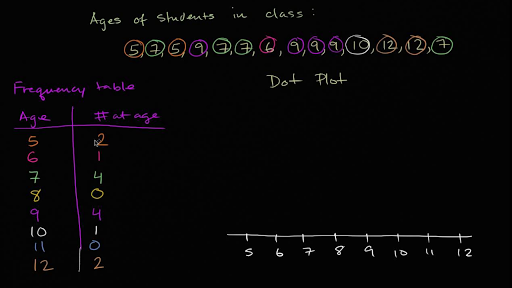 Ages of students in class:
5, 7, 5, 9, 7, 7, 6, 9, 9, 9, 10, 12, 12, 7
Dot Plot
Frequency table
Age # at age
5 2
6 1
7 4
8 0
9 4
10 1
11 0
12 2
5 6 7 8 9 10 11 12